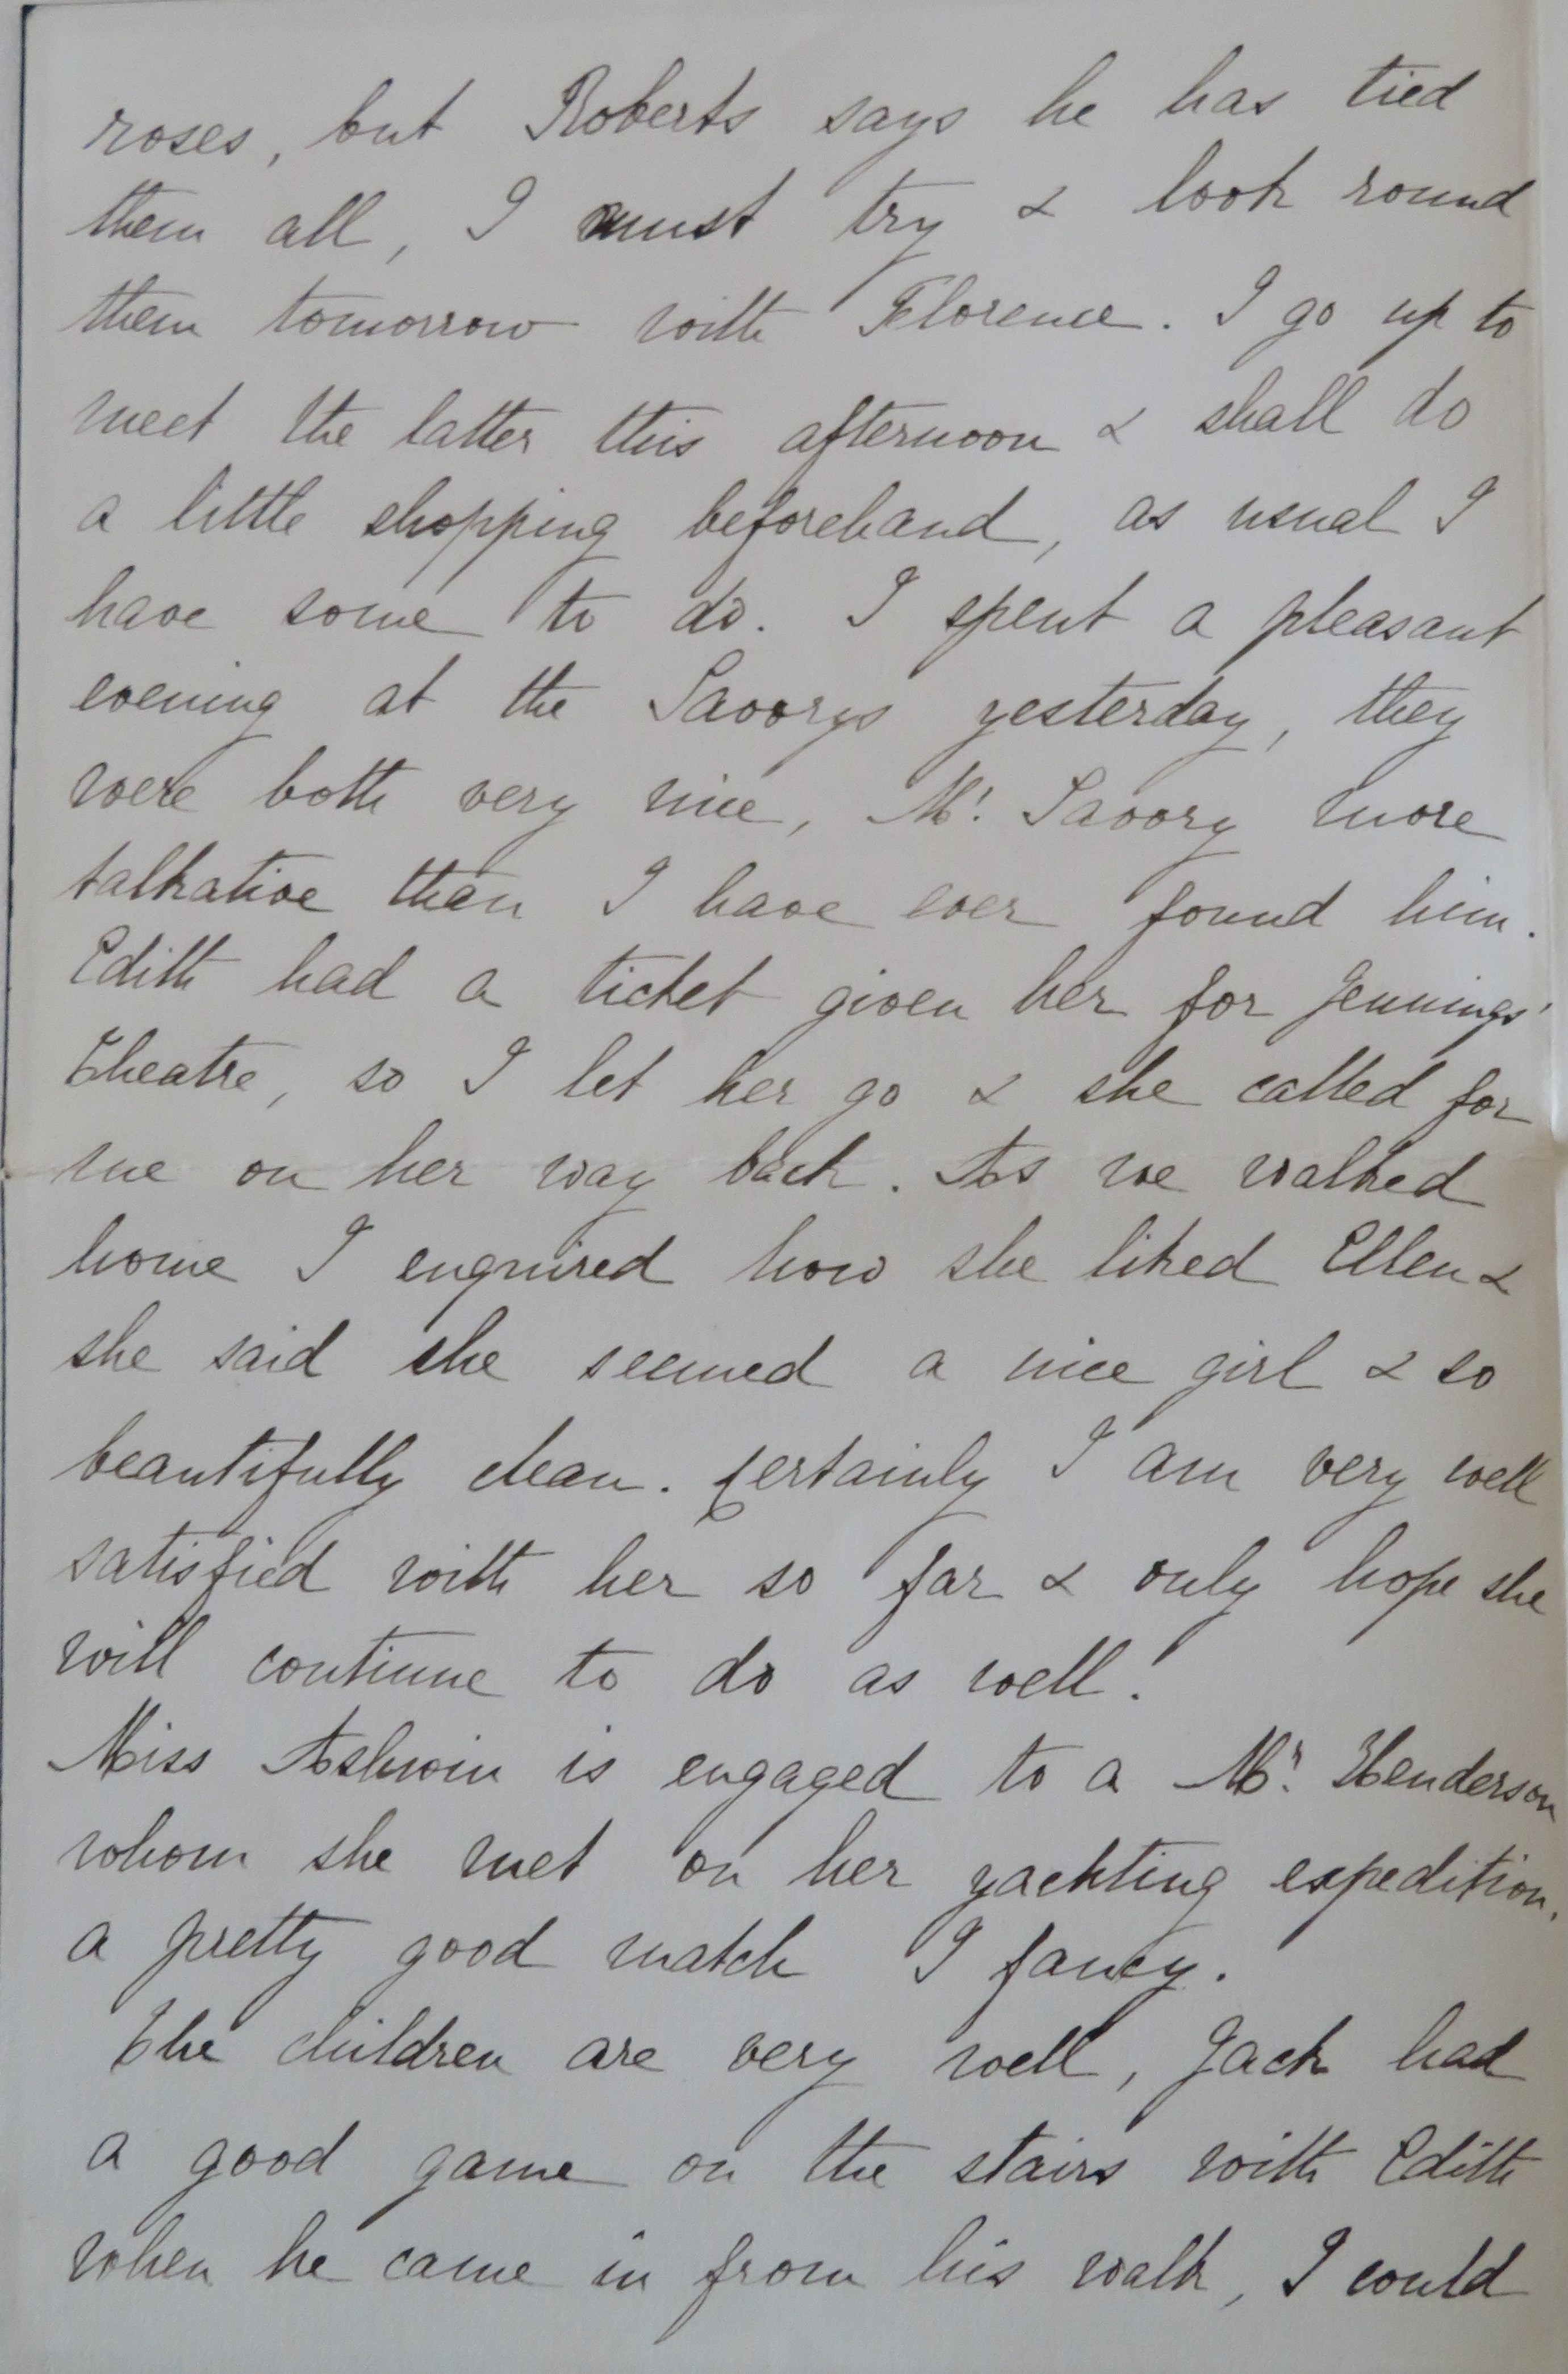 roses, but Roberts says he has tied
them all, I must try & look round
them tomorrow with Florence. I go up to
meet the latter this afternoon & shall do
a little shopping beforehand, as usual I
have some to do. I spent a pleasant
evening at the Savorys yesterday, they
were both very nice, Mr. Savory more
talkative than I have ever found him.
Edith had a ticket given her for Jennings'
Theatre, so I let her go & she called for
me on her way back. As we walked
home I enquired how she liked Ellen &
she said she seemed a nice girl & so
beautifully clean. Certainly I am very well
satisfied with her so far & only hope she
will continue to do as well!
Miss Ashwin is engaged to a Mr. Henderson
whom she met on her yachting expedition,
a pretty good match I fancy.
The children are very well, Jack had
a good game on the stairs with Edith
when he came in from his walk, I could